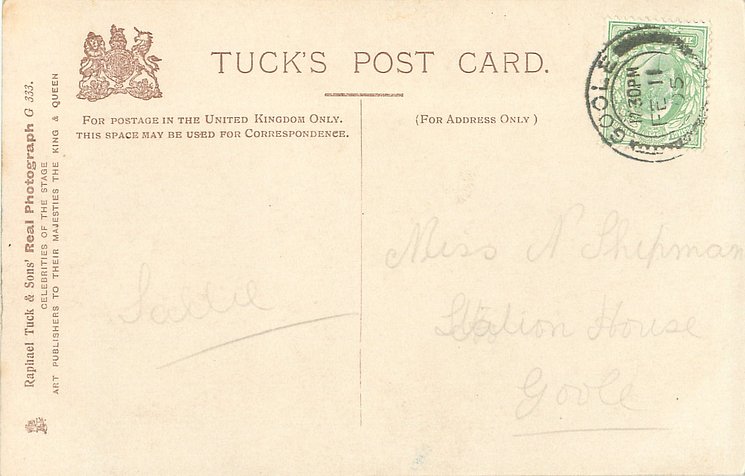 TUCK'S POST CARD.
FOR POSTAGE IN THE UNITED KINGDOM ONLY.
THIS SPACE MAY BE USED FOR CORRESPONDENCE.
(FOR ADDRESS ONLY)
GOOLE
7.30PM
FE 11
05
Raphael Tuck & Sons' Real Photograph G 333.
CELEBRITIES OF THE STAGE
ART PUBLISHERS TO THEIR MAJESTIES THE KING & QUEEN
Sallie
Miss N Shipman
Station House
Goole